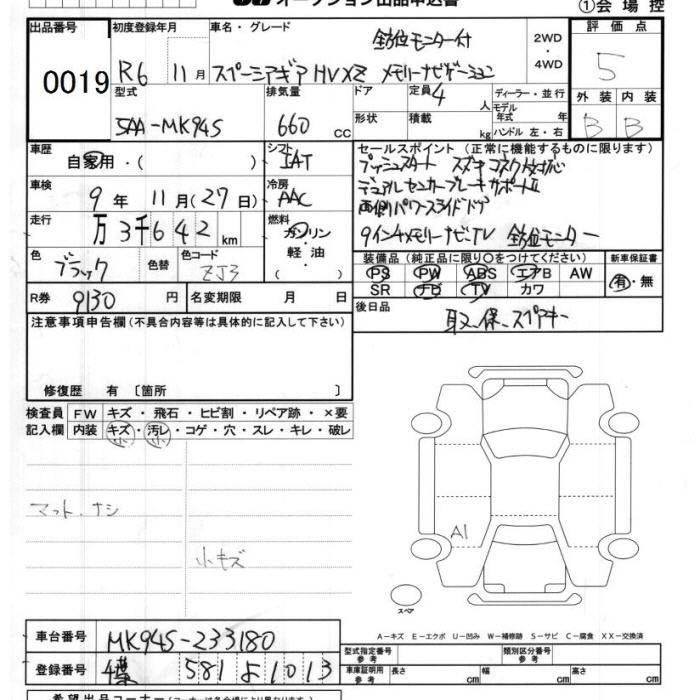 オークション出品申込書
①会場控
出品番号 0019
初度登録年月 R6 11月
車名・グレード 全方位モニター付
スペーシアギア HV XZ メモリーナビゲーション
2WD
・4WD
評価点 5
型式 5AA-MK94S
排気量 660 CC
ドア
形状
定員 4人
積載 kg
ディーラー・並行
モデル年式 年
ハンドル 左・右
外装 B
内装 B
車歴 自家用・( )
シフト IAT
車検 9年 11月(27日)
冷房 AAC
走行 万3千642km
燃料 ガソリン・軽油
( )
色 ブラック
色替
色コード ZJ3
R券 9130円
名変期限 月 日
セールスポイント(正常に機能するものに限ります)
プッシュスタート スズキコネクト対応
デュアルセンサーブレーキサポートⅡ
両側パワースライドドア
9インチメモリーナビTV 全方位モニター
装備品(純正品に限り○をつけてください)
PS PW ABS エアB AW
SR ナビ TV カワ
新車保証書 有・無
後日品 取.保.スペアキー
注意事項申告欄(不具合内容等は具体的に記入して下さい)
修復歴 有〔箇所 〕
検査員 FW キズ・飛石・ヒビ割・リペア跡・×要
記入欄 内装 キズ・汚レ・コゲ・穴・スレ・キレ・破レ
マット.ナシ
小キズ
A1
スペア
A-キズ E-エクボ U-凹み W-補修跡 S-サビ C-腐食 XX-交換済
車台番号 MK94S-233180
登録番号 581 よ 1013
型式指定番号 参考
類別区分番号 参考
車庫証明用 参考
長さ cm 幅 cm 高さ cm
希望出品コーナー